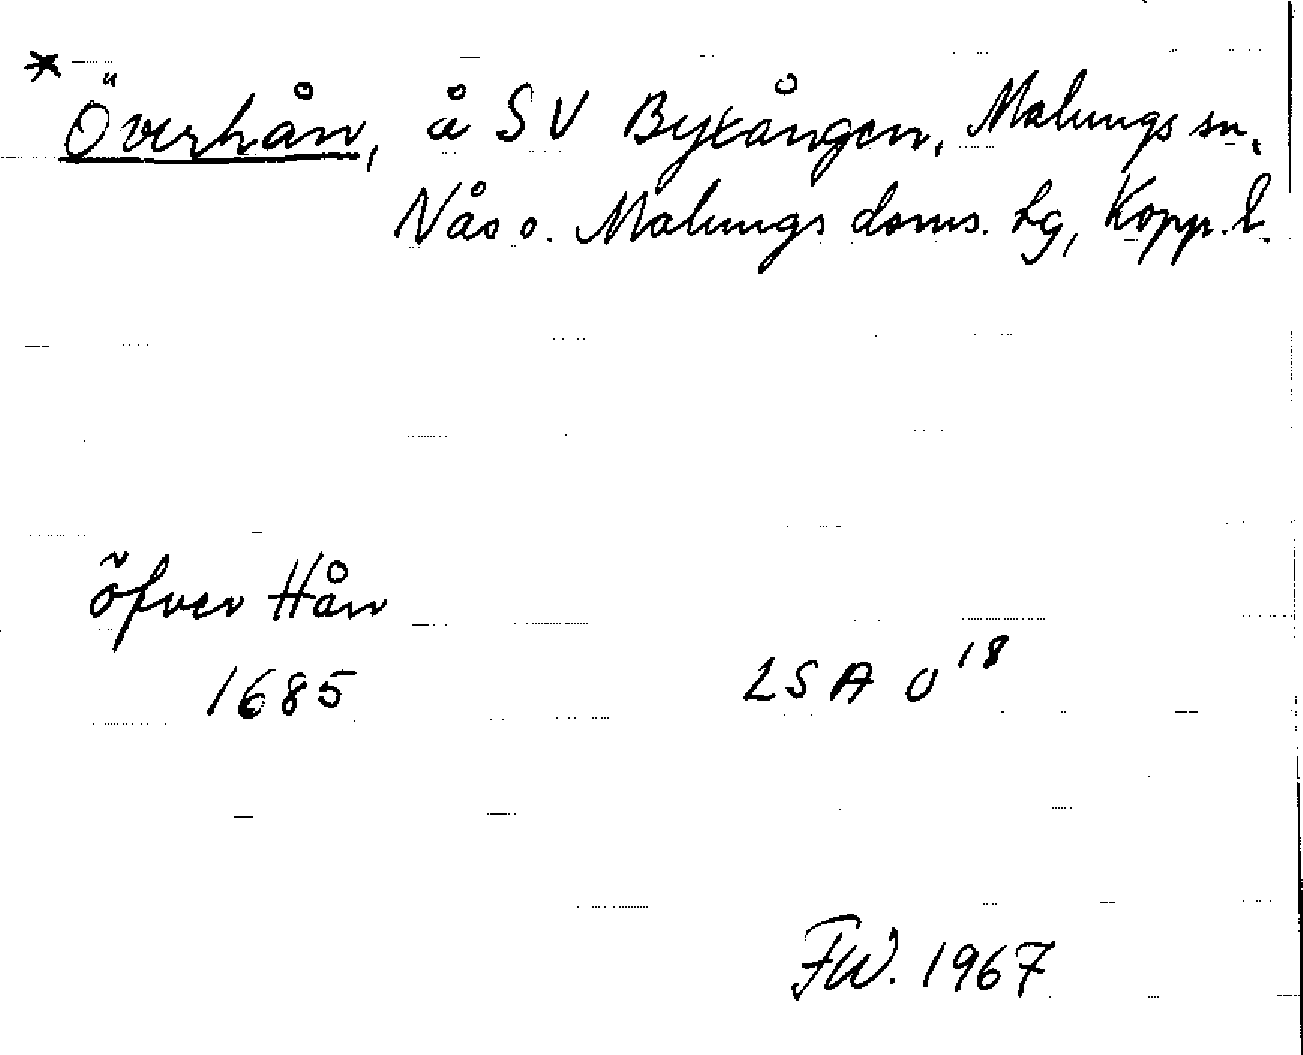 * Överhån, å SV Bytången, Malungs sn,
Nås o. Malungs doms. hg, Kopp. l.
öfver Hån
1685 LSA U 18
FW. 1967